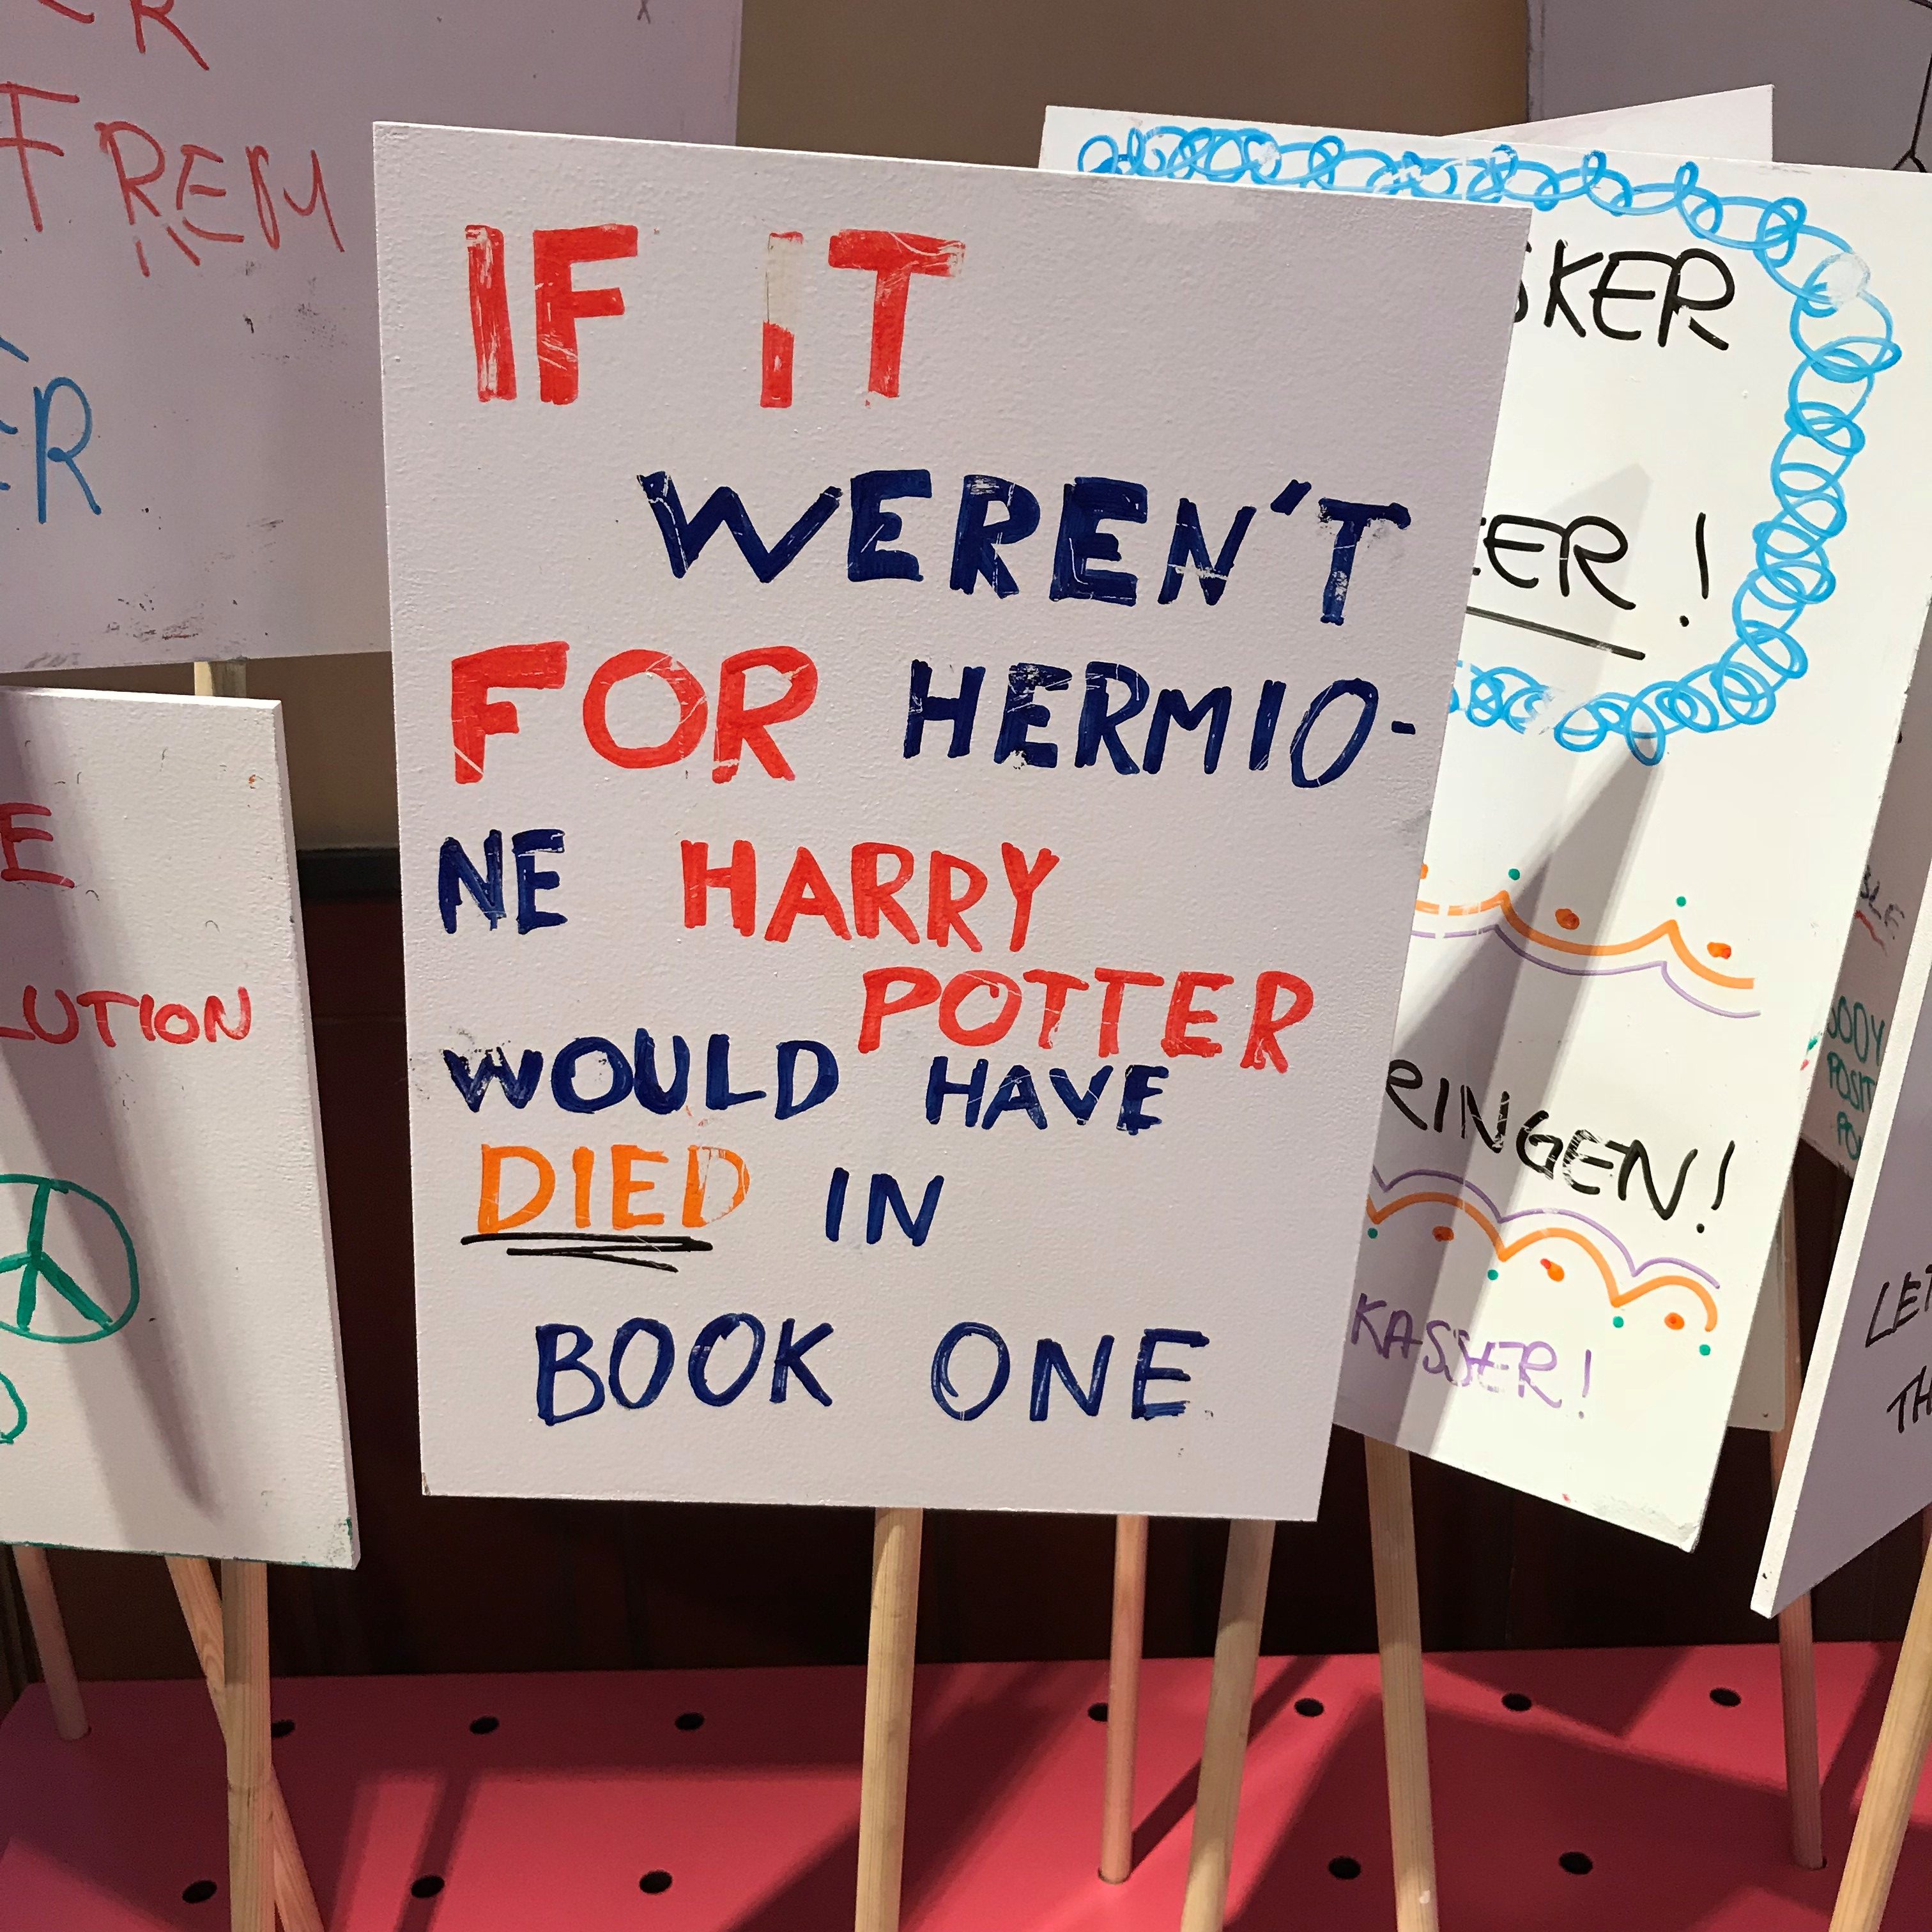 FREM
IF IT
WEREN'T
FOR HERMIO-
NE HARRY
POTTER
WOULD HAVE
DIED IN
BOOK ONE
SKER
ER !
RINGEN!
KASSER!
E
LUTION
BODY
POSIT
PO
LET
TH